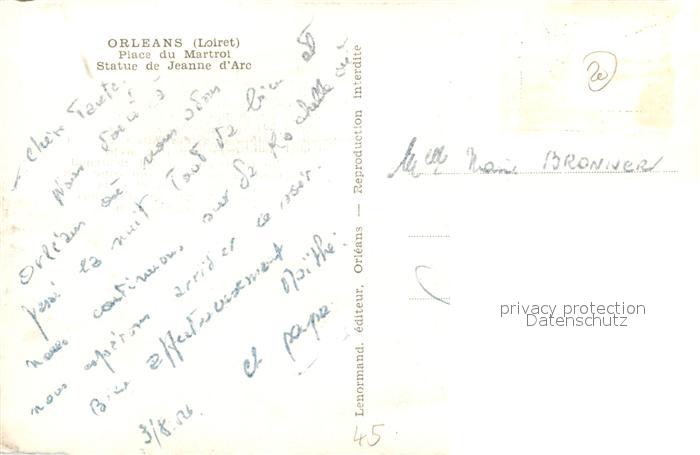 ORLEANS (Loiret)
Place du Martroi
Statue de Jeanne d'Arc
Chère Tante.
Nous voici à
Orléans où nous avons
passé la nuit. Tout va bien et
nous continuons sur La Rochelle où
nous espérons arriver ce soir.
Bien affectueusement Maïthé
et papa.
3/8.
Lenormand, éditeur, Orléans — Reproduction interdite
Mlle Marie BRONNER
20
45
privacy protection
Datenschutz